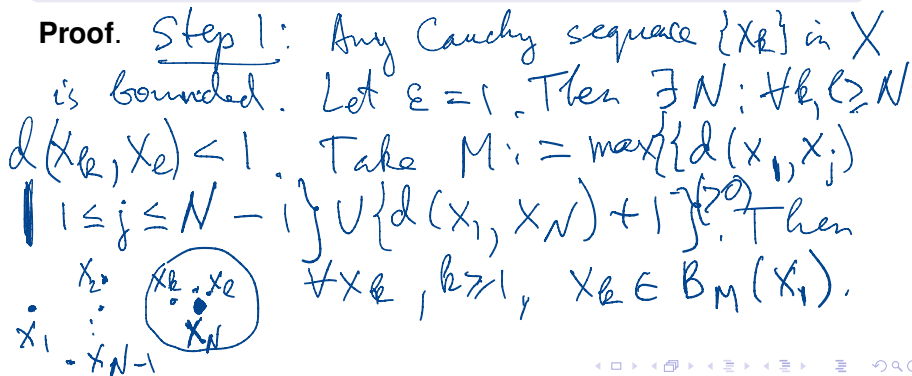 Proof. Step 1: Any Cauchy sequence {x_k} in X
is bounded. Let ε = 1. Then ∃ N : ∀k, l ≥ N
d(x_k, x_l) < 1. Take M := max{{d(x_1, x_j)
| 1 ≤ j ≤ N - 1} ∪ {d(x_1, x_N) + 1}} (>0). Then
∀x_k, k ≥ 1, x_k ∈ B_M(x_1).
x_2 x_k x_l
x_1 x_N
x_{N-1}